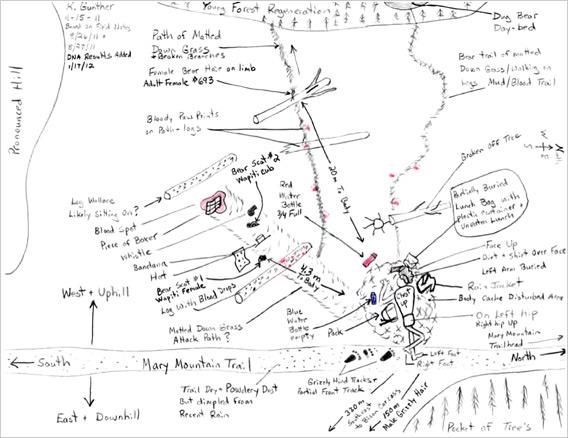 K. Gunther
11-15-11
Based on Field Notes
8/26/11 +
8/27/11
DNA Results Added
1/17/12
Pronounced Hill
Young Forest Regeneration
Dug Bear
Day-bed
Path of Matted
Down Grass
+ Broken Branches
Female Bear Hair on limb
Adult Female #693
Bear trail of matted
Down Grass/Walking on
Logs Mud/Blood Trail
Bloody Paw Prints
on Path + logs
Bear Scat #2
Wapiti cub
Red
Water
Bottle
3/4 Full
20m To Body
Broken off Tree
Partially Buried
Lunch Bag with
Plastic container +
Uneaten Lunch
Log Wallace
Likely Sitting On?
Blood Spot
Piece of Boxer
Whistle
Bandana
Hat
Bear Scat #1
Wapiti Female
Log With Blood Drops
4.3 m
To Body
Matted Down Grass
Attack Path?
Blue
Water
Bottle
empty
Pack
Chest
Up
Face Up
Dirt + Shirt Over Face
Left Arm Buried
Rain Jacket
Body Cache Disturbed Area
On Left hip
Right hip Up
Mary Mountain
Trailhead
West + Uphill
South
Mary Mountain Trail
North
Left Foot
Right Foot
East + Downhill
Trail Dry + Powdery Dust
But dimpled from
Recent Rain
Grizzly Hind Tracks +
Partial Front Track
320m
Southeast
to Bison Carcass
150m
Male Grizzly Hair
Pocket of Tree's